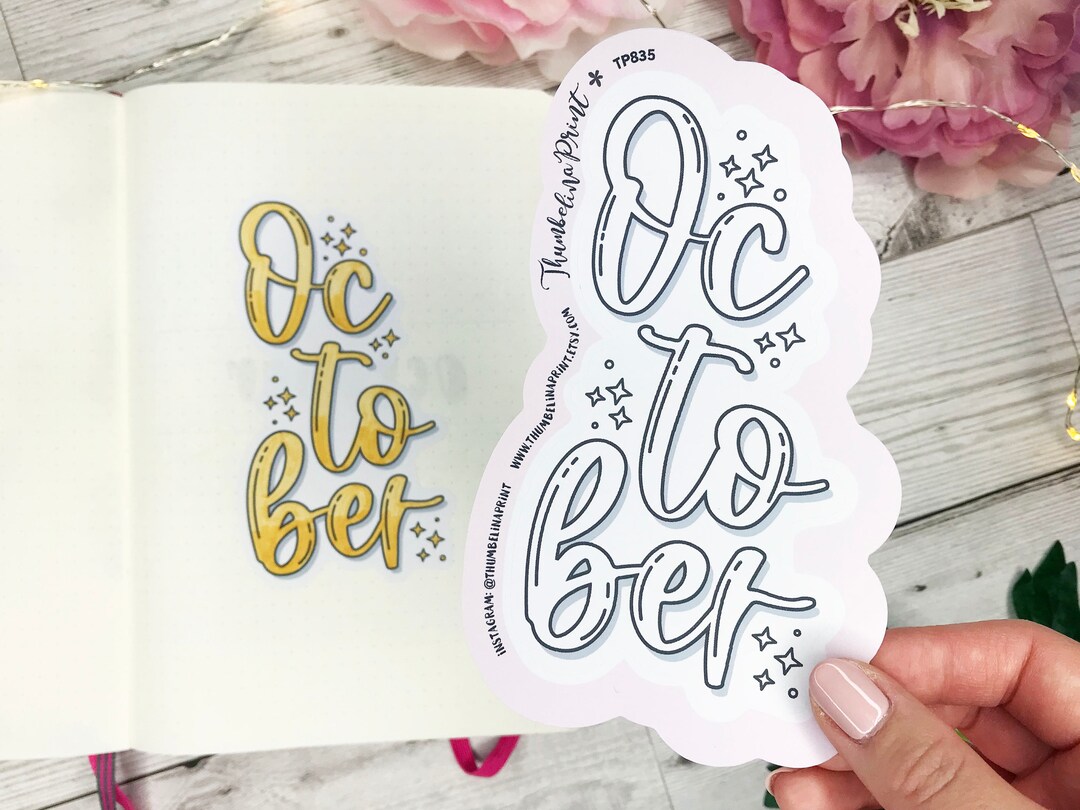 Oc
to
ber
TP835
Thumbelina Print *
Oc
to
ber
WWW.THUMBELINAPRINT.ETSY.COM
INSTAGRAM: @THUMBELINAPRINT